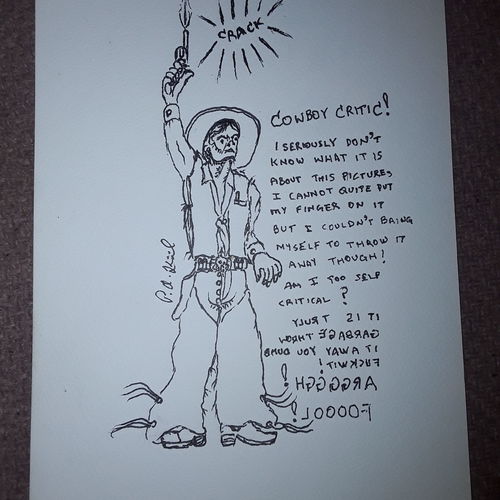 CRACK
COWBOY CRITIC!
I SERIOUSLY DON'T
KNOW WHAT IT IS
ABOUT THIS PICTURES
I CANNOT QUITE PUT
MY FINGER ON IT
BUT I COULDN'T BRING
MYSELF TO THROW IT
AWAY THOUGH!
AM I TOO SELF
CRITICAL?
IT IS TRULY
GARBAGE THROW
IT AWAY YOU DUMB
FUCKWIT!
ARGGGGH!
FOOOOL!
P.A.